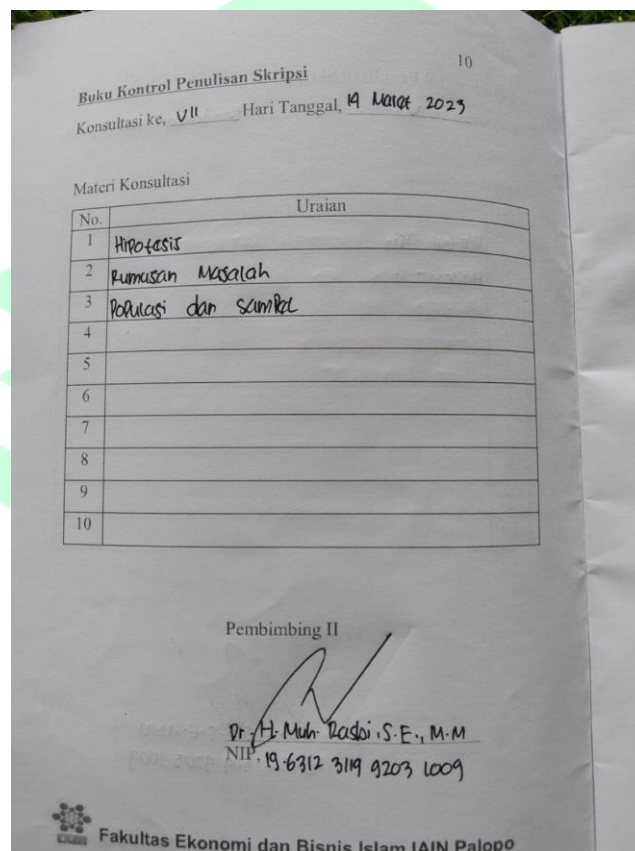 10
Buku Kontrol Penulisan Skripsi
Konsultasi ke, VII Hari Tanggal, 19 Maret 2023
Materi Konsultasi
No. Uraian
1 Hipotesis
2 Rumusan Masalah
3 Populasi dan sampel
4
5
6
7
8
9
10
Pembimbing II
Dr. H. Muh. Rasbi, S.E., M.M
NIP. 19.6312 3119 9203 1009
Fakultas Ekonomi dan Bisnis Islam IAIN Palopo